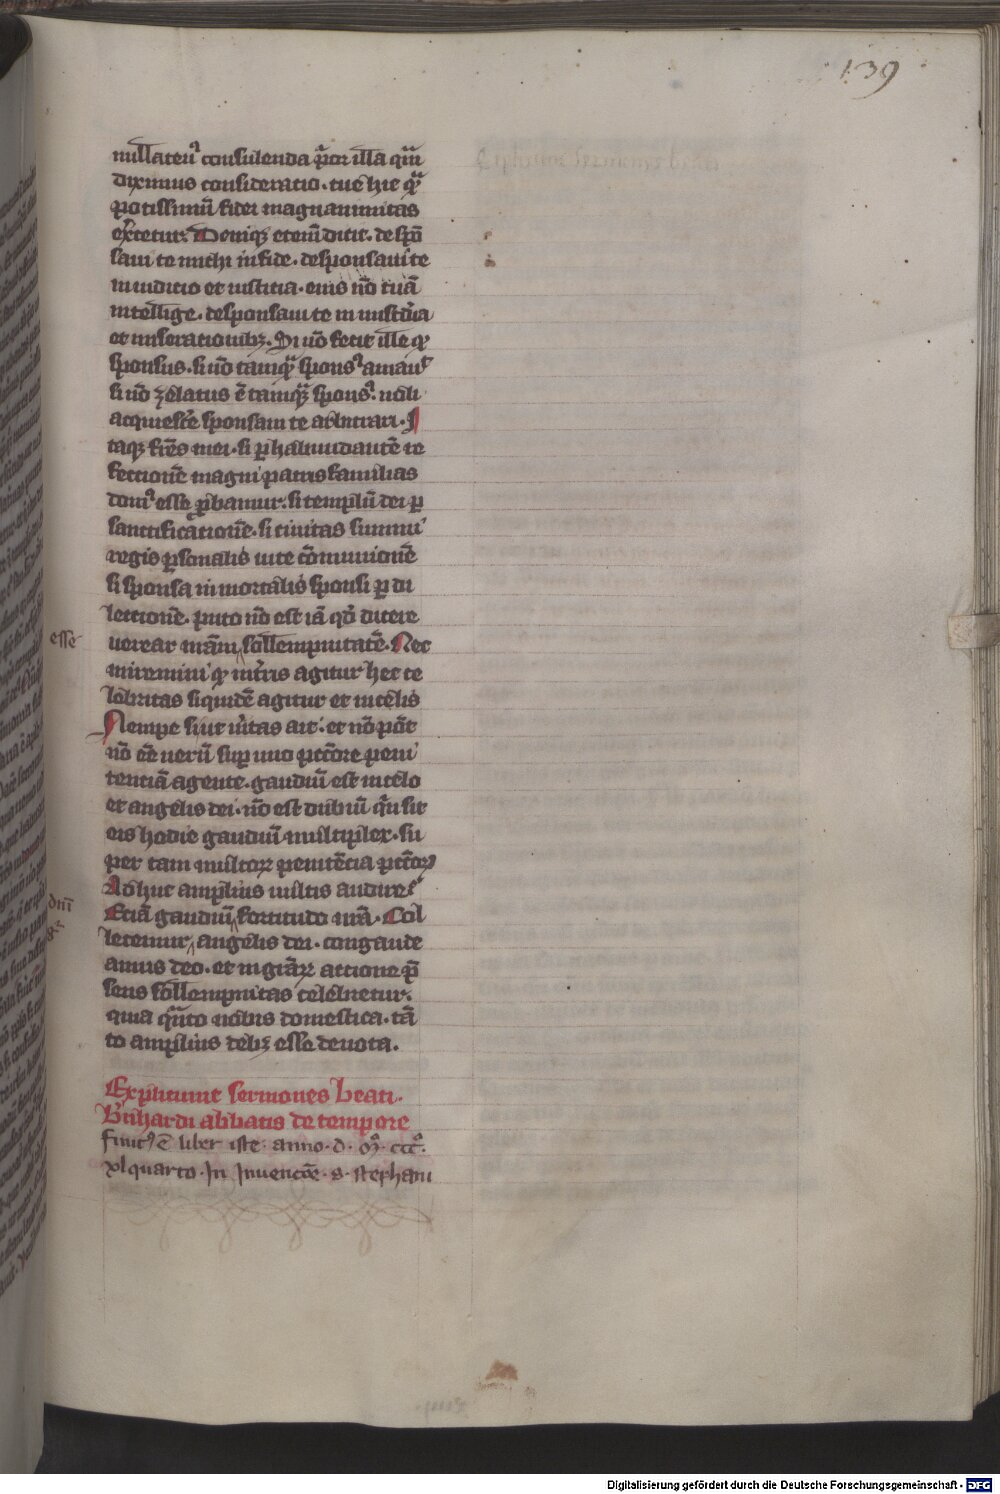 139
nullateꝰ consulenda p̄or illa qm̄
diximus consideratio. tūc hic qͣ
potissimū fidei magnanimitas
ex̄cetur. Deniq; etenī dicit. despō
saui te michi in fide. desponsaui te
in iudicio et iusticia. eius nō tuā
intellige. desponsaui te in mis̄dia
et miserationib;. Si nō fecit ille qͥ
sponsus. si nō tamqͣ sponsꝰ amauᵗ
si nō zelatus ē tamqͣ sponsꝰ. noli
acquiesc̄e sponsam te arbitrari. I
taq; fr̄es mei. si ꝑ habundantē re
fectionē magni patris familias
domꝰ esse ꝓbamur. si templū dei ꝑ
sanctificationē. si ciuitas summi
regis ꝑ socialis uite cōmunionē
si sponsa inmortalis sponsi ꝑ di
lectionē. puto nō est iā qō dicere
esse
uerear nr̄am sollempnitatē. Nec
miremini qͥ in tr̄is agitur hec ce
lebritas siquidē agitur et in celis
Nempe si ut ūitas ait. et nō pōt
nō eē uerū suꝑ uno pcc̄ore peni
tentiā agente. gaudiū est in celo
et angelis dei. nō est dubiū qn̄ sit
eis hodie gaudiū multiplex. su
per tam multoꝝ penitēcia pcc̄oꝝ
Adhuc amplius uultis audire
dn̄i
Eciā gaudiū fortitudo nr̄a. Col
letemur angelis dei. congaude
amus deo. et in gr̄aꝝ actione p̄
sens sollempnitas celebretur.
quia qͣnto nobis domestica. tā
to amplius deb; esse deuota.
Expliciunt sermones beati
B̄nhardi abbatis de tempore
finitꝰ ē liber iste. anno. d. mͦ. cccͦ.
xl quarto. In Inuencōe. s. stephani
Digitalisierung gefördert durch die Deutsche Forschungsgemeinschaft - DFG